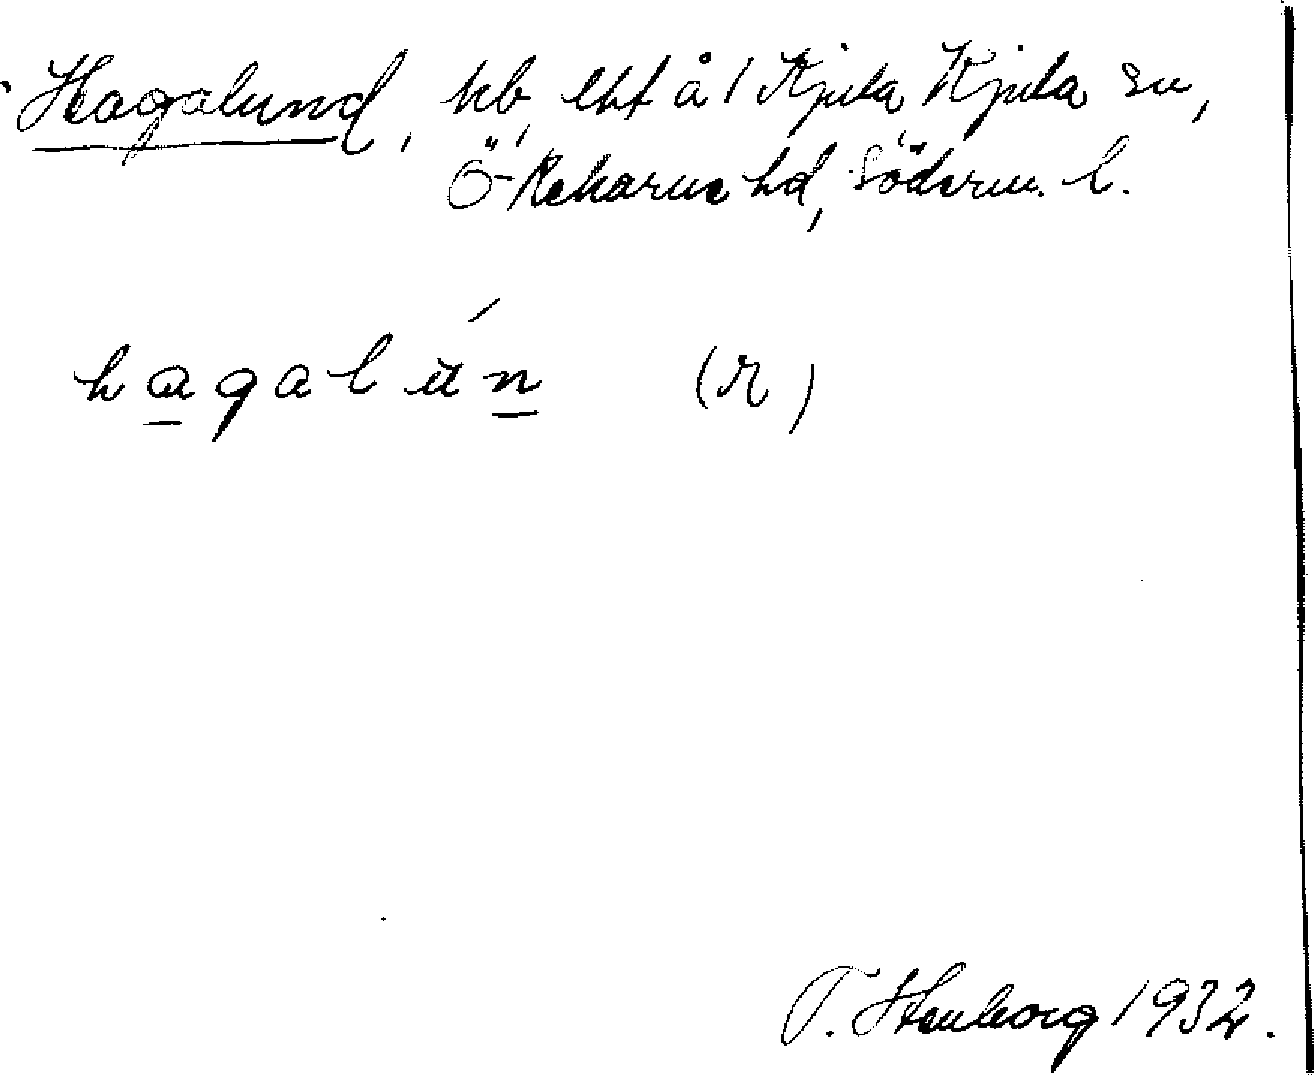 Hagalund, hb, lht å 1 Kjula, Kjula sn,
Ö-Rekarne hd, Söderm. l.
hagalu̇́n (R)
T. Stenborg 1932.